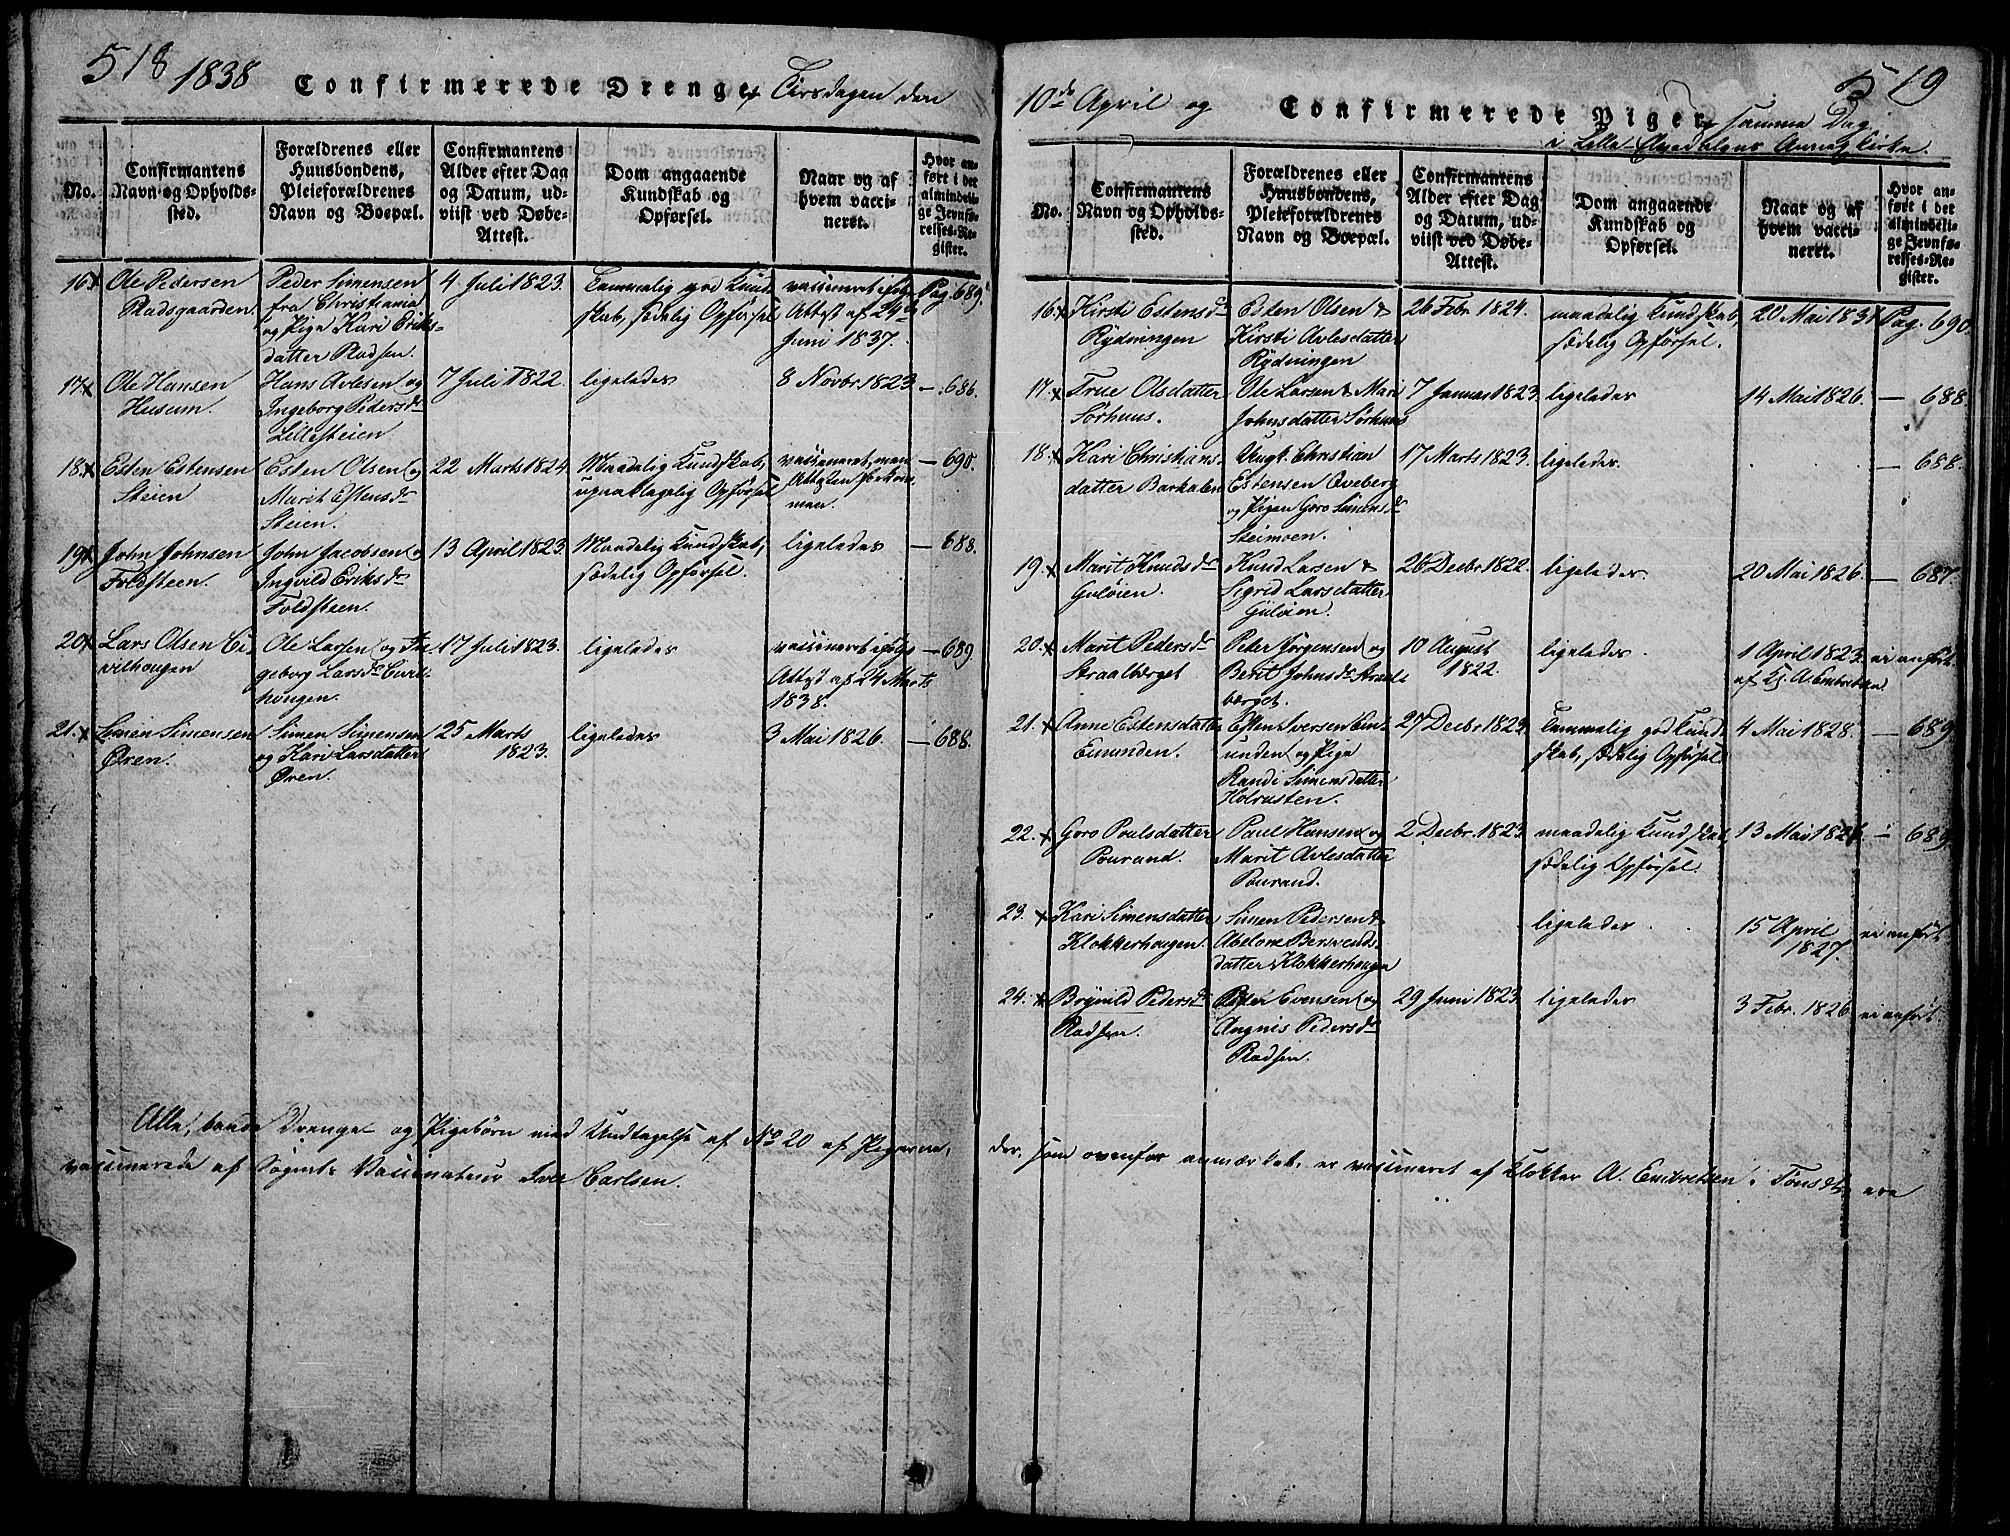 518 1838 Confirmerede Drenge, Tirsdagen den
No.
Confirmantens
Navn og Opholds-
sted.
Forældrenes eller
Huusbondens,
Pleieforældrenes
Navn og Boepæl.
Confirmantens
Alder efter Dag
og Datum, ud-
viist ved Døbe-
Attest.
Dom angaaende
Kundskab og
Opførsel.
Naar og af
hvem vacci-
neret.
Hvor an-
ført i det
almindeli-
ge Jevnfø-
relses-Re-
gister.
16. Ole Pedersen
Radsgaarden.
Peder Simensen
fra Christiania
og Pige Kari Eriks-
datter Radsen.
4 Juli 1823.
Tammelig god Kund-
skab, sædelig Opførsel
vaccineret ifølge
Attest af 24de
Juni 1837.
Pag. 689.
17. Ole Hansen
Husum.
Hans Avlesen og
Ingeborg Pedersdr
Lillesteien
7 Juli 1822.
ligeledes
8 Novbr. 1823
— 686.
18. Esten Estensen
Steien
Esten Olsen og
Marit Estensdr
Steien.
22 Marts 1824
Maadelig Kundskab,
upaaklagelig Opførsel
vaccineret, men
Attesten forkom-
men.
— 690.
19. John Johnsen
Foldsteen.
John Jacobsen og
Ingrild Eriksdr
Foldsteen.
13 April 1823.
Maadelig Kundskab,
sædelig Opførsel.
ligeledes
— 688.
20. Lars Olsen Ei-
vilhaugen
Ole Larsen og In-
geborg Larsdr Eivil-
haugen.
17 Juli 1823.
ligeledes
vaccineret ifølge
Attest af 24 Marts
1838.
— 689.
21. Simen Simensen
Øren.
Simen Simensen
og Kari Larsdatter
Øren.
25 Marts
1823.
ligeledes
3 Mai 1826.
— 688.
Alle, baade Drenge- og Pigebørn med Undtagelse af No 20 af Pigerne,
vaccinerede af Sognets Vaccinateur Iver Carlsen.
10de April og Confirmerede Piger samme Dag 519
i Lille-Elvedalens Annex Kirke.
No.
Confirmantens
Navn og Opholds-
sted.
Forældrenes eller
Huusbondens,
Pleieforældrenes
Navn og Boepæl.
Confirmantens
Alder efter Dag
og Datum, ud-
viist ved Døbe-
Attest.
Dom angaaende
Kundskab og
Opførsel.
Naar og af
hvem vacci-
neret.
Hvor an-
ført i det
almindeli-
ge Jevnfø-
relses-Re-
gister.
16. Kirsti Estensdr
Rydningen
Esten Olsen &
Kirsti Avlesdatter
Rydningen
26 Febr. 1824.
maadelig Kundskab,
sædelig Opførsel.
20 Mai 1831
Pag. 690.
17. True Olsdatter
Sørhuus.
Ole Larsen & Mari
Johnsdatter Sørhuus
7 Januar 1823.
ligeledes
14 Mai 1826.
— 688.
18. Kari Christians-
datter Barkalen
Ungk. Christian
Estensen Qveberg
og Pigen Goro Simensdr
Steimoen.
17 Marts 1823.
ligeledes.
— 688.
19. Marit Knudsdr
Guløien.
Knud Larsen &
Sigrid Larsdatter
Guløien.
26 Decbr. 1822.
ligeledes.
20 Mai 1826.
— 687.
20. Marit Pedersdr
Straalberget
Peter Jørgensen og
Berit Johnsdr Straal-
berget.
10 August
1822.
ligeledes.
1 April 1823.
af Kl. A. Embretsen
ei anført.
21. Anne Estensdatter
Eimunden.
Esten Iversen Eim-
unden og Pige
Randi Simensdatter
Holrusten.
27 Decbr. 1823
Tammelig god Kund-
skab, sædelig Opførsel.
4 Mai 1828.
— 689
22. Goro Poulsdatter
Pourand.
Paul Hansen og
Marit Avlesdatter
Pourand.
2 Decbr. 1823.
maadelig Kundskab,
sædelig Opførsel.
13 Mai 1826.
— 689.
23. Kari Simensdatter
Klokkerhougen.
Simen Pedersen &
Abelone Bersvends-
datter Klokkerhougen
ligeledes.
15 April
1827.
ei anført.
24. Brynild Pedersdr
Radsen.
Peder Evensen og
Angnis Pedersdr
Radsen.
29 Juni 1823.
ligeledes
3 Febr. 1826
ei anført.
der, som ovenfor anmærket, er vaccineret af Klokker A. Embretsen i Tønset, ere